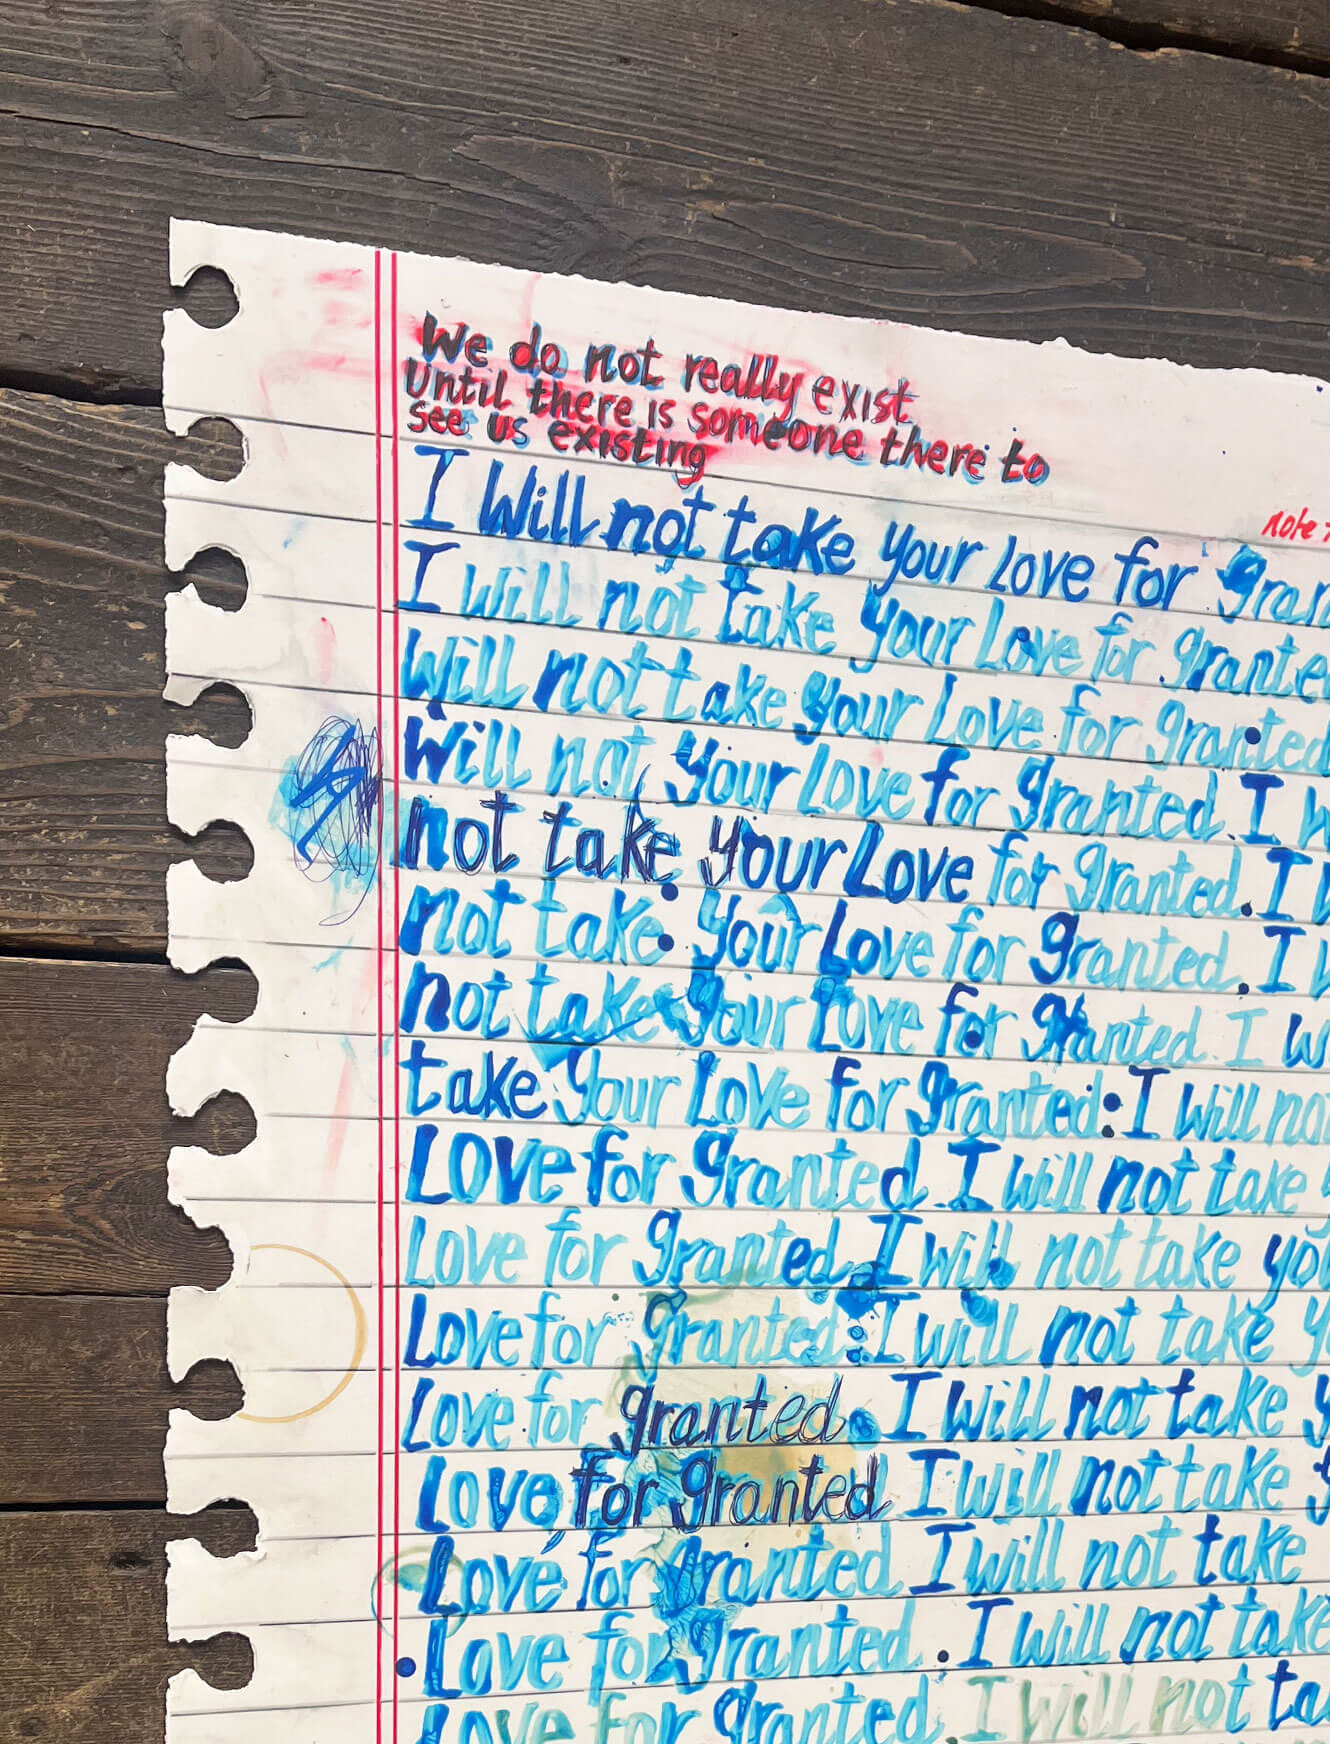 We do not really exist
Until there is someone there to
see us existing
note
I Will not take your Love for gran
I will not take your Love for grante
Will not take your Love for granted
Will not your Love for granted. I w
not take. your Love for granted. I w
not take. your Love for granted. I w
not take your Love for granted. I w
take your Love for granted: I will no
Love for granted. I will not take
Love for granted. I will not take yo
Love for granted: I will not take y
Love for granted. I will not take y
Love for granted I will not take
Love for granted I will not take
Love for granted. I will not take
Love for granted. I will not ta